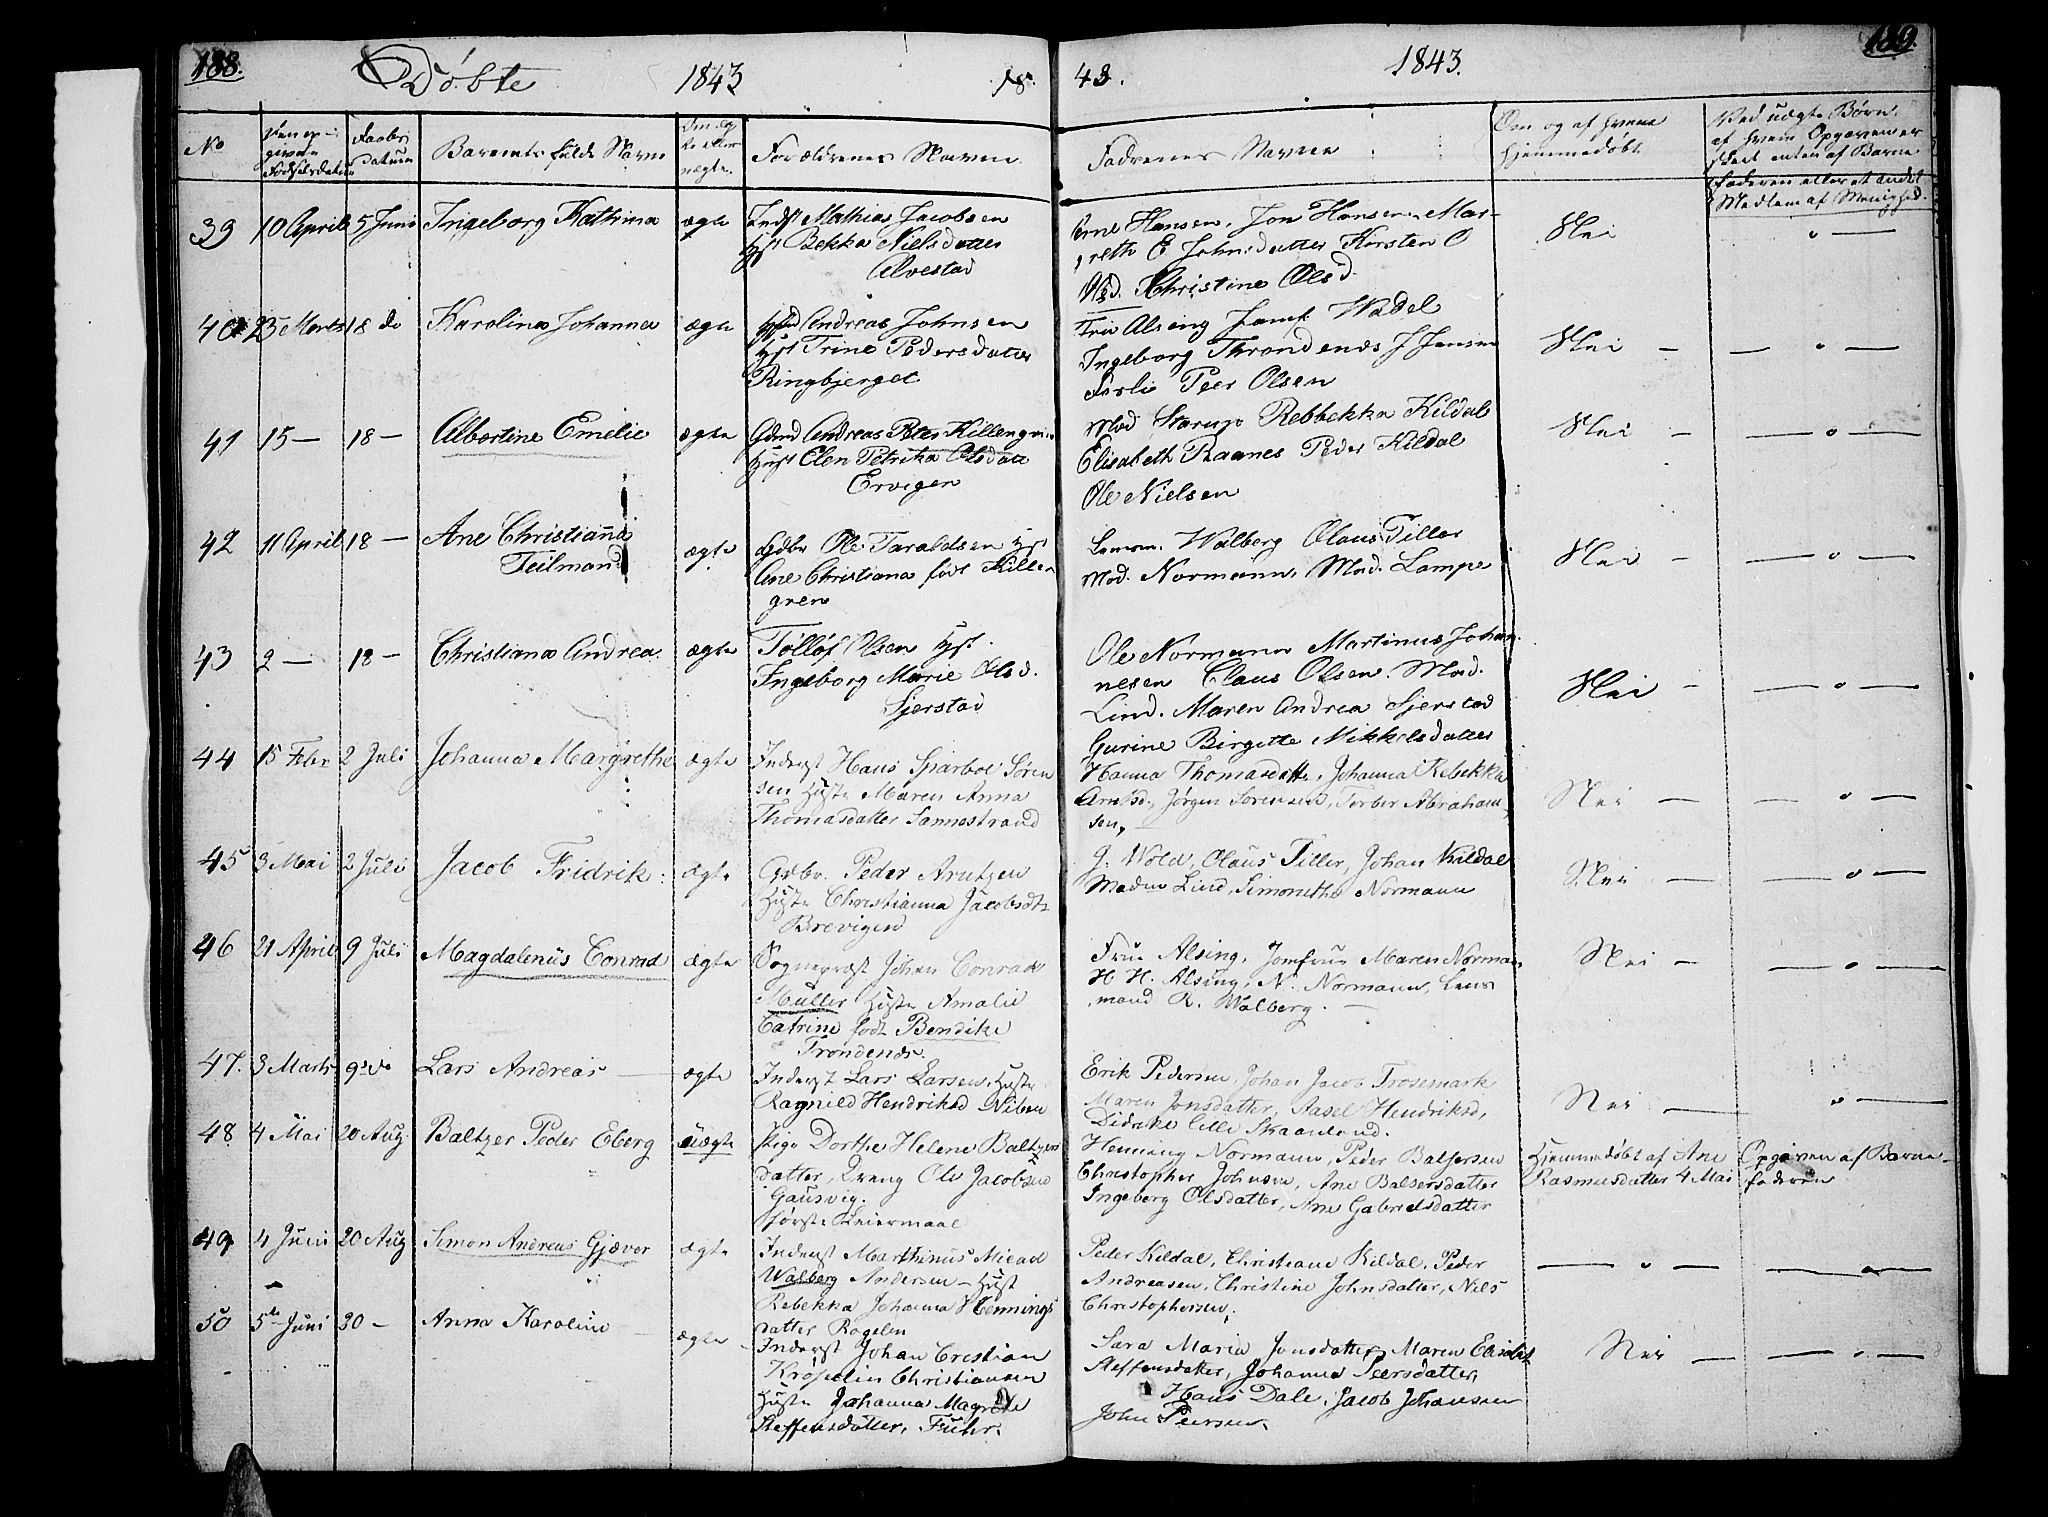 188.
Döbte 1843 18
43. 1843.
189.
No
Den op-
givne
Födselsdatum
Daabs
Datum
Barnets fulde Navn
Om æg-
te eller
uægte.
Forældrenes Navne
Fadrenes Navne
Om og af hvem
hjemmedöbt
Ved uægte Börn
af hvem Opgaven er
skeet enten af Barne
faderen eller et andet
Medlem af Menighed.
39 10 April 5 Juni Ingeborg Kathrina ægte Indst Mathias Jacobsen
Hst Bekka Nielsdatter
Alvestad
Arne Hansen, Jon Hansen Mar-
greth E Johnsdatter Karsten O
Christine Olsd.
Nei
40 23 Marts 18 do Karolina Johanna ægte Andreas Johnsen
Hst Trine Pedersdatter
Ringbjerget
Fru Alsing Jomf Wadel
Ingeborg Throndenæs J Jensen
Peer Olsen
Nei
41 15 — 18 — Albertine Emelie ægte Gdmd Andreas Peter Killengren
Hust Elen Petrika Olsdatter
Ervigen
Mad Rebbekka Kildal
Elisabeth Raanes Peder Kildal
Ole Nielsen
Nei
42 11 April 18 — Ane Christianna
Feilmand
ægte Gdbr Ole Taraldsen Hst
Ane Christiana född Killen
gren
Lensm. Walberg Olaus Tiller
Mad. Normann, Mad. Lampe
Nei
43 2 — 18 — Christiana Andrea. ægte Tölløf Olsen Hst.
Ingeborg Marie Olsd.
Sjerstad
Ole Normann Martinus Johan
nesen Claus Olsen. Mad.
Lind. Maren Andrea Sjerstad
Nei
44 15 Febr 2 Juli Johanna Margrethe ægte Inderst Hans Sparboe Sören
sen Hustr Maren Anna
Thomasdatter Sannestrand
Gurine Birgitte Mikkelsdatter
Hanna Thomasdatter, Johanna Rebekka
Arntsd, Jörgen Sorensen, Torber Abraham-
sen,
Nei
45 3 Mai 2 Juli Jacob Fridrik ægte Gdbr. Peder Arntzen
Hustr Christianna Jacobsdtr
Brevigen
J. Wold, Olaus Tiller, Johan Kildal
Madm Lind, Simonethe Normann
Nei
46 21 April 9 Juli Magdalenius Conrad ægte Sognepræst Johan Conrad
Müller Hustr Amalie
Catrine født Bendike
Trondenæs.
Frue Alsing, Jomfrue Maren Norman
H. H. Alsing, N. Normann, Lens
mand R. Walberg.
Nei
47. 3 Marts 9 do Lars Andreas ægte Inderst Lars Larsen Hustr
Ragnild Hendriksd
Erik Pedersen, Johan Jacob Trosemark
Maren Jonsdatter, Aasel Hendriksd,
Didrike Elli Skaanland.
Nei
48. 4 Mai 20 Aug Baltzer Peder Eberg uægte Pige Dorthe Helene Baltzers
datter, Dreng Ole Jacobsen
Gausvig.
förste Leiermaal
Henning Normann, Peder Balsersen
Christopher Johnsen, Ane Balsersdatter
Ingeborg Olsdatter, Ane Gabrielsdatter
Hjemmedöbt af Ane
Rasmusdatter 4 Mai
Opgaven af Barne-
faderen
49 4 Juni 20 Aug Simon Andreas Gjæver ægte Inderst Marthinus Micael
Walberg Andersen — Hust
Rebekka Johanna Hennings
datter Rogelen
Peder Kildal, Christiane Kildal, Peder
Andreasen, Christine Johnsdatter, Nils
Christophersen,
50 5te Juni 20 — Anna Karoline ægte Inderst Johan Crestian
Krøpelin Christiansen
Hustr Johanna Magrete
Steffensdatter, Fuhr.
Sara Maria Jonsdatter, Maren Elisabet
Steffensdatter, Johanna Peersdatter,
Hans Dale, Jacob Johansen
John Peersen.
Nei